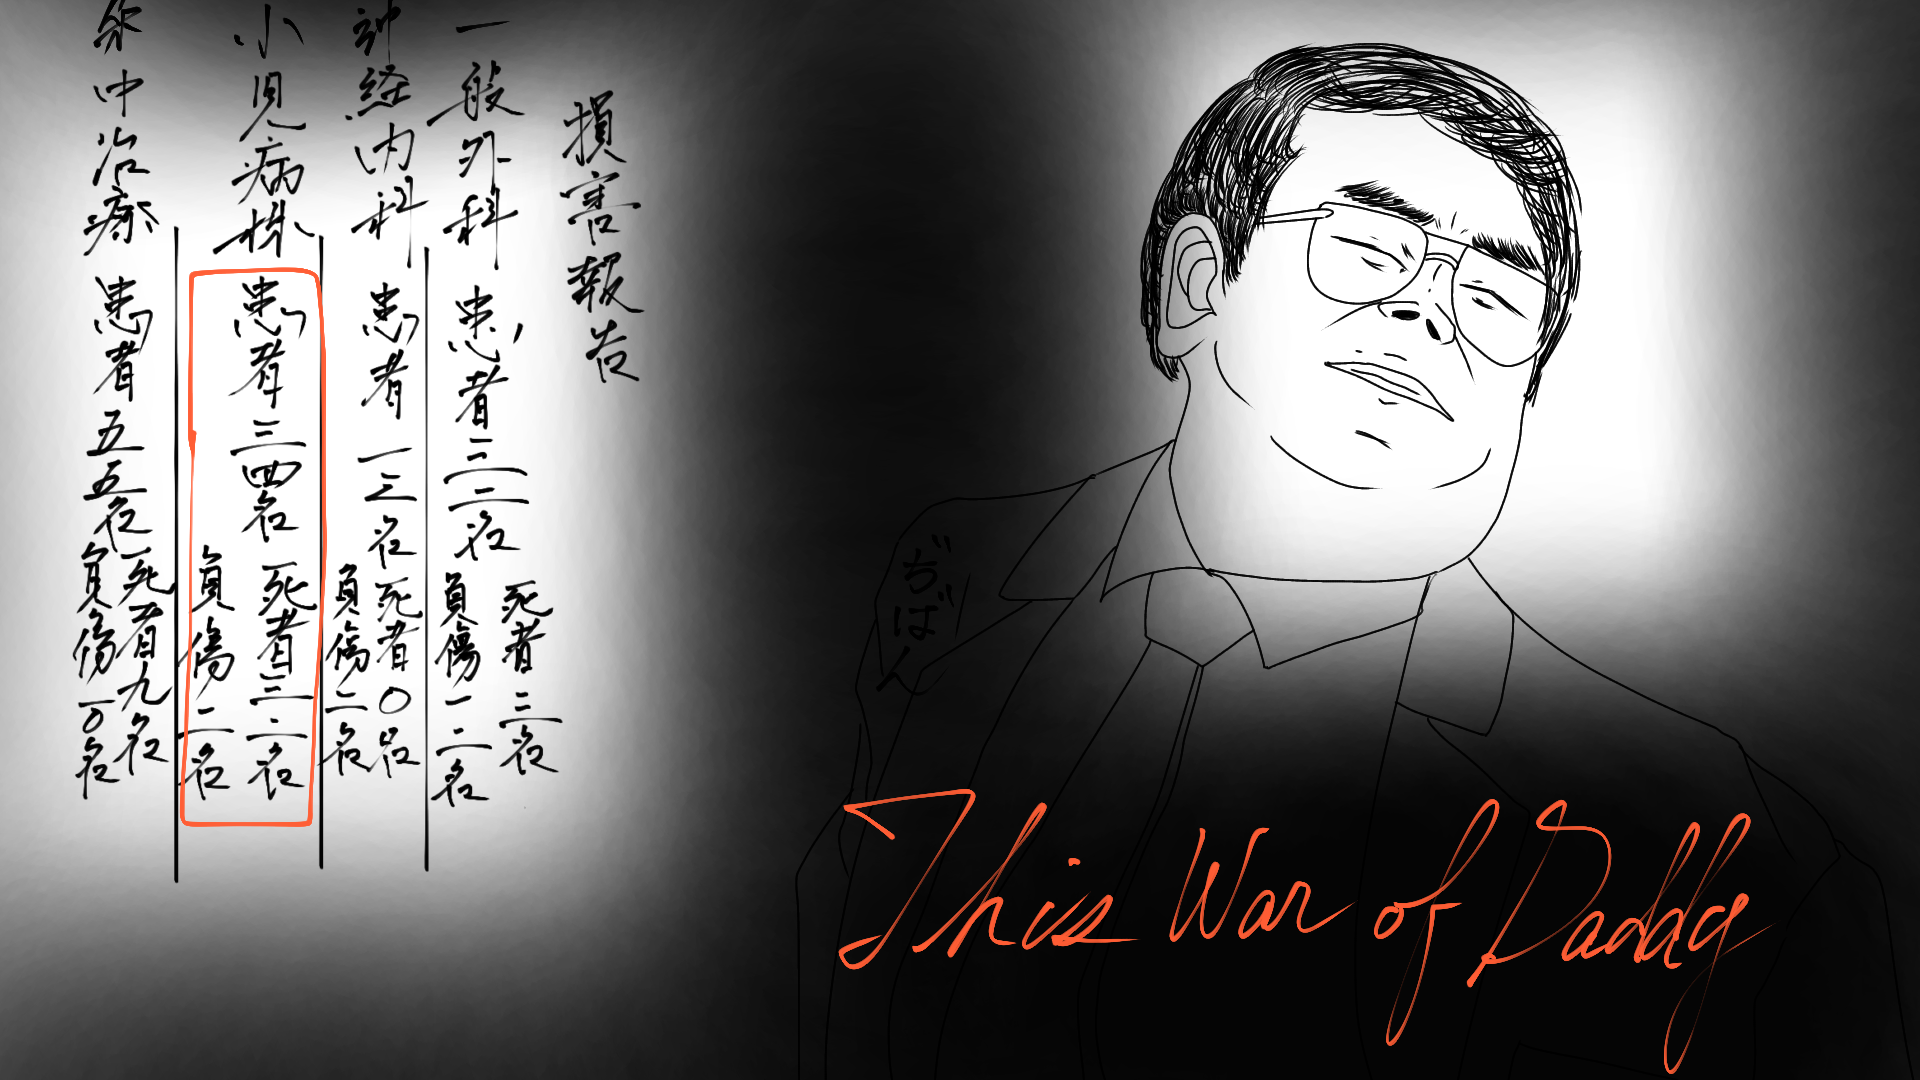 損害報告
一般外科 患者三二名 死者三名 負傷一二名
神経内科 患者一三名 死者〇名 負傷二名
小児病棟 患者三四名 死者三二名 負傷二名
集中治療 患者五五名 死者九名 負傷一〇名
ぢばん
This War of Daddy